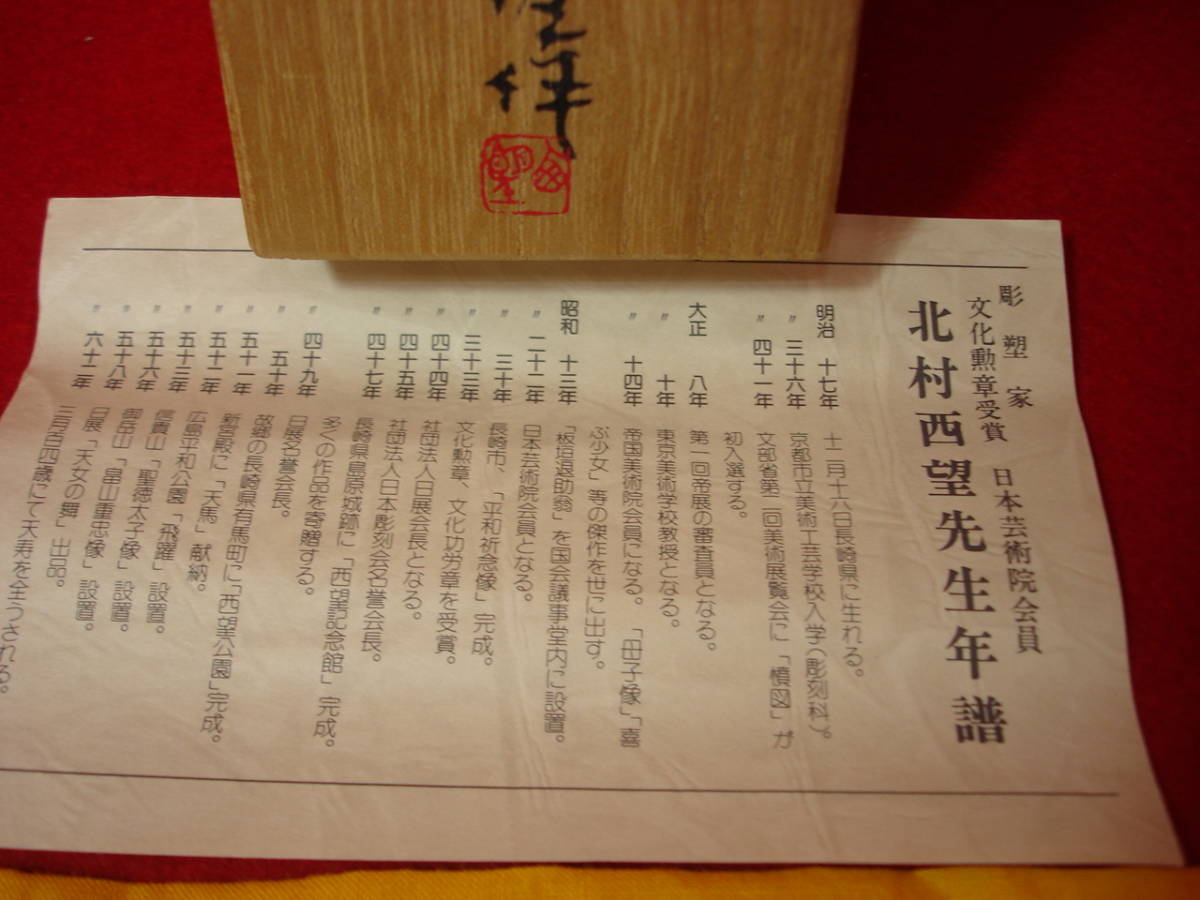 作
彫塑家
文化勲章受賞 日本芸術院会員
北村西望先生年譜
明治 十七年 十二月十六日長崎県に生れる。
〃 三十六年 京都市立美術工芸学校入学(彫刻科)。
〃 四十一年 文部省第二回美術展覧会に「憤図」が
初入選する。
大正 八年 第一回帝展の審査員となる。
〃 十年 東京美術学校教授となる。
〃 十四年 帝国美術院会員になる。「母子像」「喜
ぶ少女」等の傑作を世に出す。
昭和 十三年 「板垣退助翁」を国会議事堂内に設置。
〃 二十二年 日本芸術院会員となる。
〃 三十年 長崎市、「平和祈念像」完成。
〃 三十三年 文化勲章、文化功労章を受賞。
〃 四十四年 社団法人日展会長となる。
〃 四十五年 社団法人日本彫刻会名誉会長。
〃 四十七年 長崎県島原城跡に「西望記念館」完成。
多くの作品を寄贈する。
〃 四十九年 日展名誉会長。
〃 五十年 故郷の長崎県有馬町に「西望公園」完成。
〃 五十一年 新宮殿に「天馬」献納。
〃 五十二年 広島平和公園「飛躍」設置。
〃 五十三年 信貴山「聖徳太子像」設置。
〃 五十六年 御岳山「畠山重忠像」設置。
〃 五十八年 日展「天女の舞」出品。
〃 六十二年 三月百四歳にて天寿を全うされる。